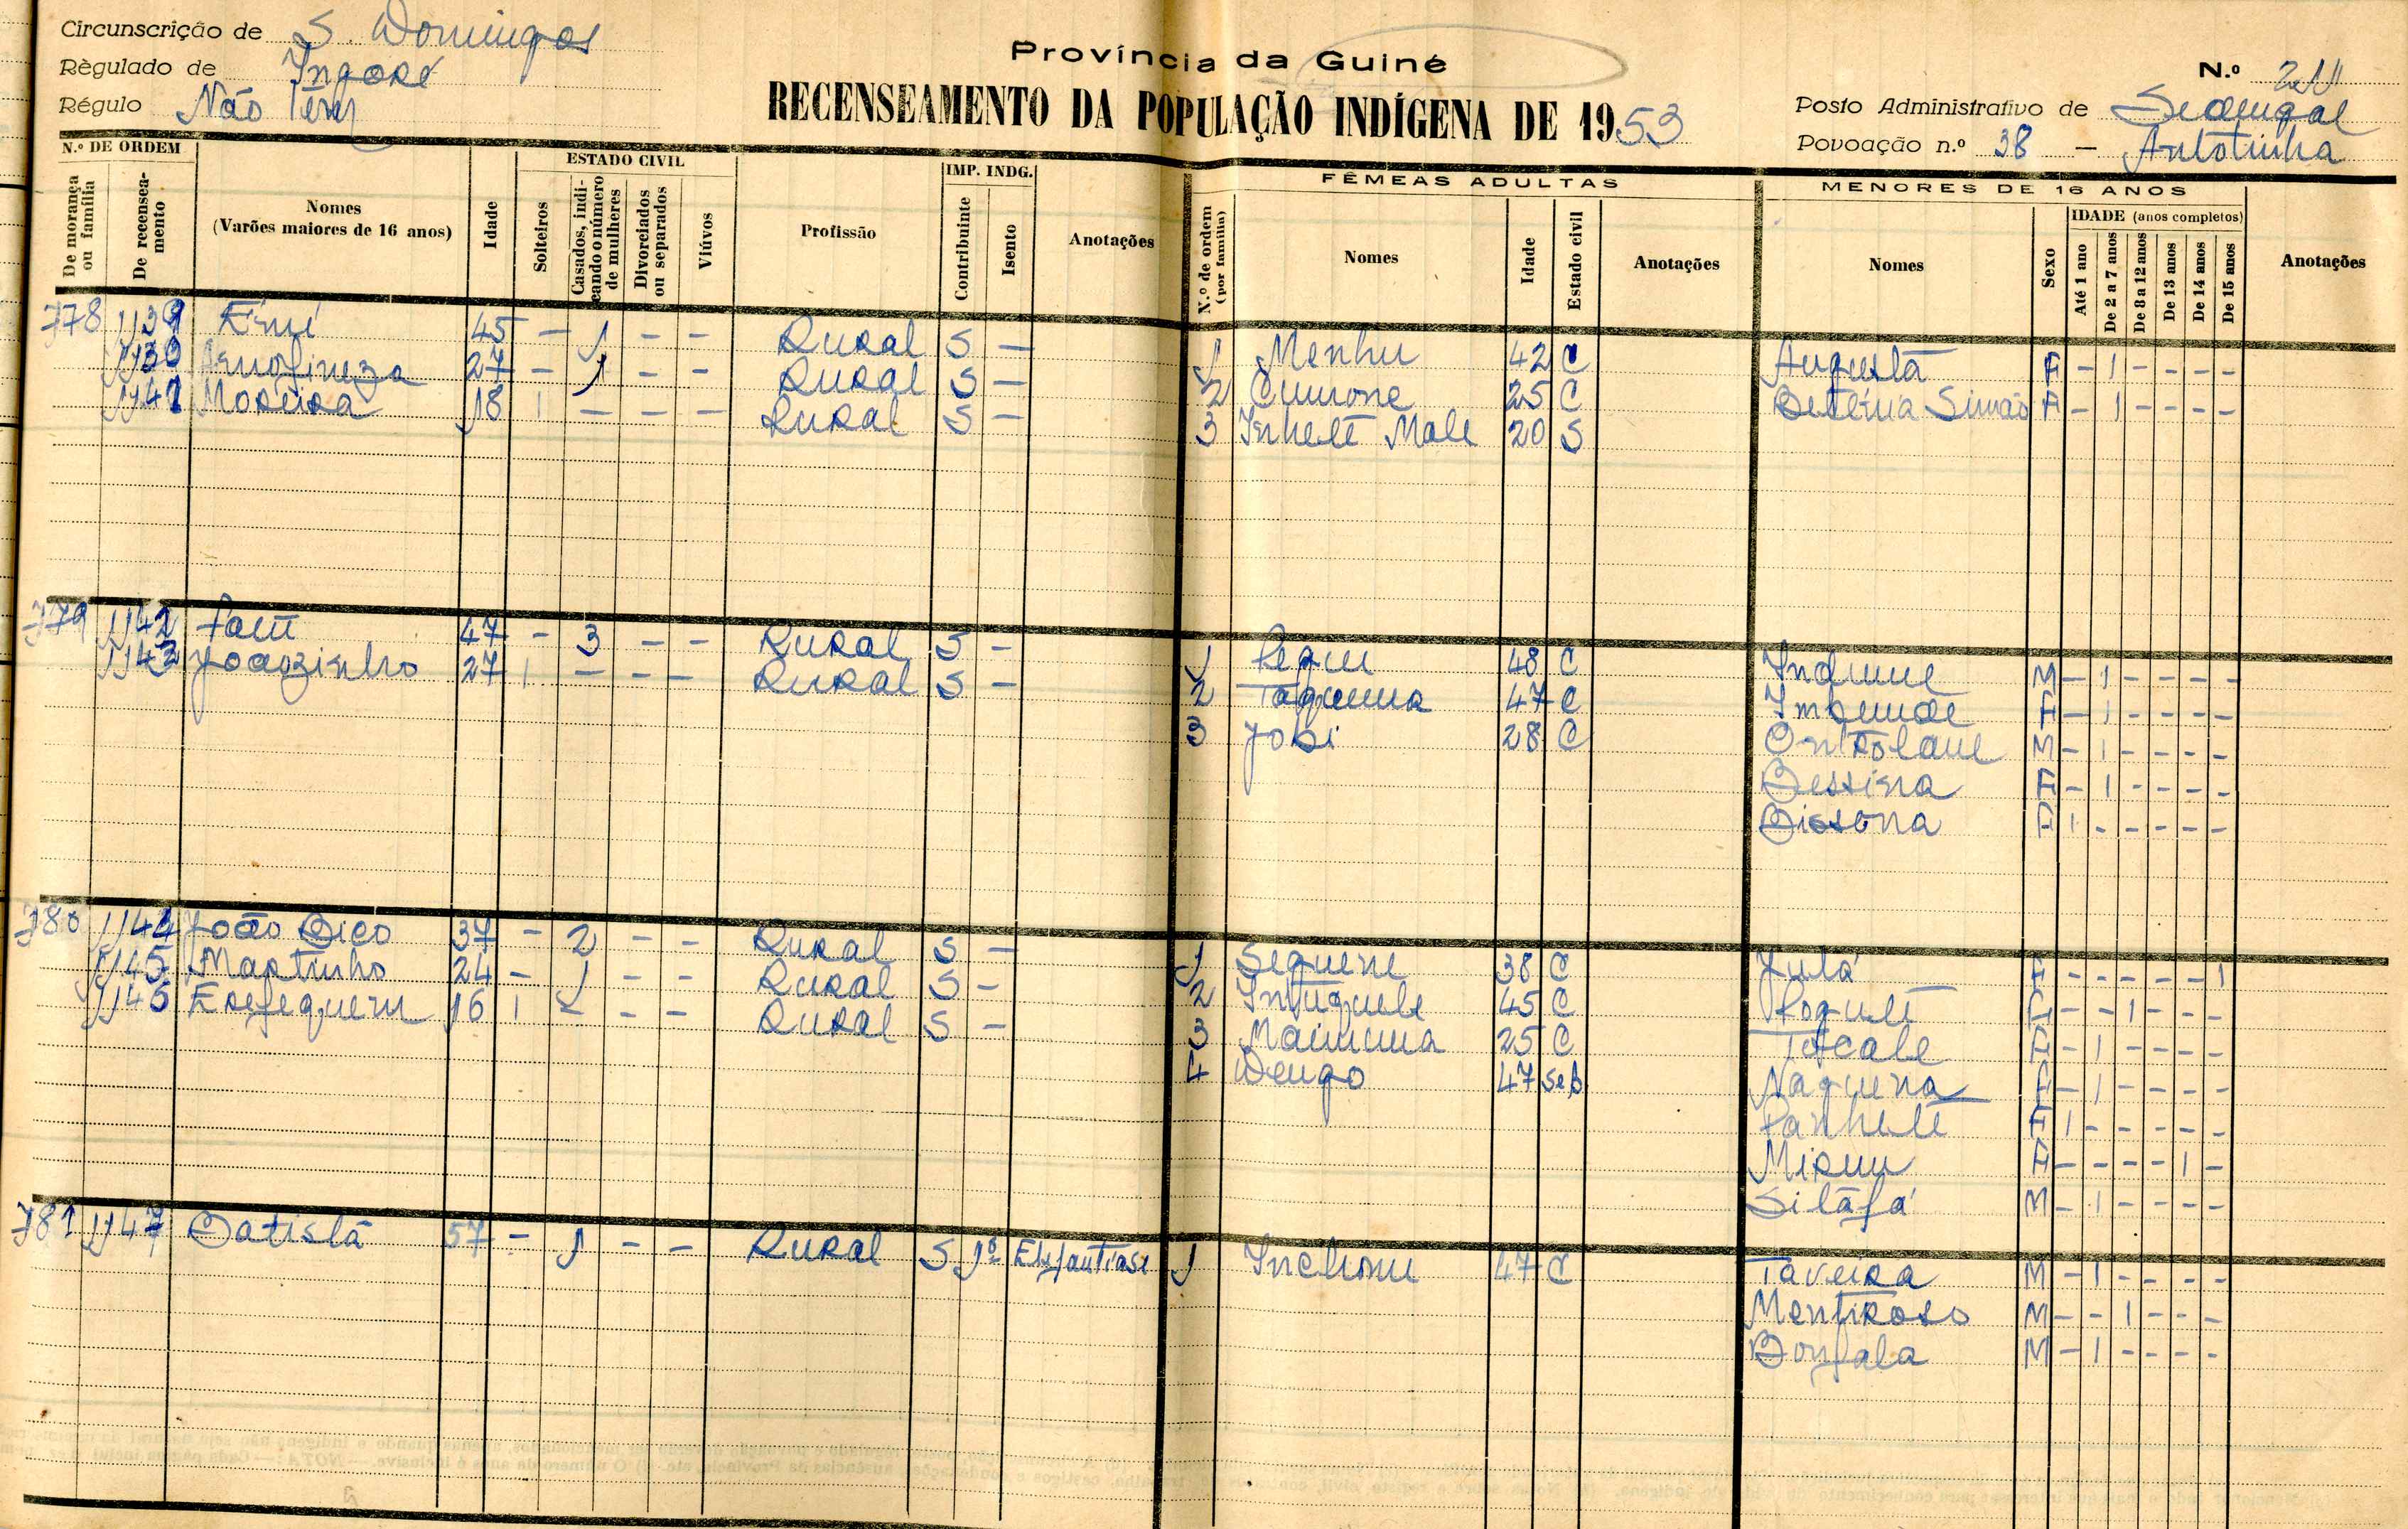 Circunscrição de S. Domingos
Règulado de Ingoré
Régulo Não tem
Província da Guiné
RECENSEAMENTO DA POPULAÇÃO INDÍGENA DE 1953
N.º
Posto Administrativo de Sedengal
Povoação n.º 38 — Antotinha
N.º DE ORDEM
De morança ou família
De recenseamento
Nomes
(Varões maiores de 16 anos)
Idade
ESTADO CIVIL
Solteiros
Casados, indicando o número de mulheres
Divorciados ou separados
Viúvos
Profissão
IMP. INDG.
Contribuinte
Isento
Anotações
FÊMEAS ADULTAS
N.º de ordem (por família)
Nomes
Idade
Estado civil
Anotações
MENORES DE 16 ANOS
Nomes
Sexo
IDADE (anos completos)
Até 1 ano
De 2 a 7 anos
De 8 a 12 anos
De 13 anos
De 14 anos
De 15 anos
Anotações
778 1139 45 — 1 — — Rural S — 1 Menhu 42 C Augusta F — 1 — — — —
27 — 1 — — Rural S — 2 Cumone 25 C Simão F — 1 — — — —
1141 Moreira 18 1 — — — Rural S — 3 Inhete Male 20 S
779 1142 47 — 3 — — Rural S — 1 48 C M — 1 — — — —
1143 Joãozinho 27 1 — — — Rural S — 2 Taquema 47 C F — 1 — — — —
3 Jobi 28 C M — 1 — — — —
Bessina F — 1 — — — —
Bissona F 1 — — — — —
780 1144 João Bico 37 — 2 — — Rural S — 1 Sequene 38 C Julá F — — — — — 1
1145 Martinho 24 — 1 — — Rural S — 2 45 C F — — 1 — — —
1146 16 1 — — — Rural S — 3 Maimuna 25 C F — 1 — — — —
4 Dengo 47 sep Naquena F — 1 — — — —
Panhete F 1 — — — — —
Mirun F — — — — 1 —
Silafá M — 1 — — — —
781 1147 Batista 57 — 1 — — Rural S 1º Elefantiase 1 Inchom 47 C Taveira M — 1 — — — —
Mentiroso M — — 1 — — —
Bonfala M — 1 — — — —